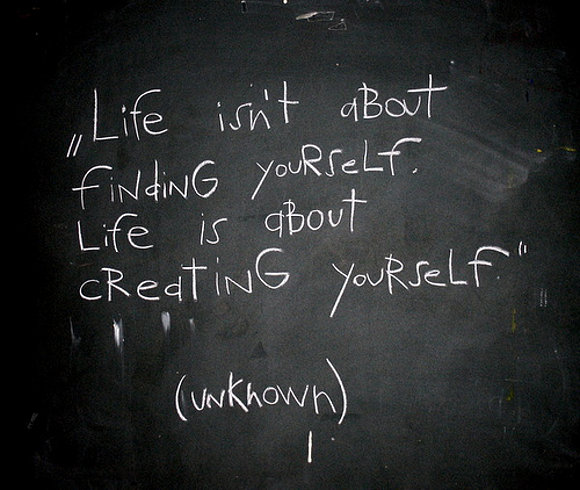 „Life isn't about
finding yourself.
Life is about
creating yourself"
(unknown)